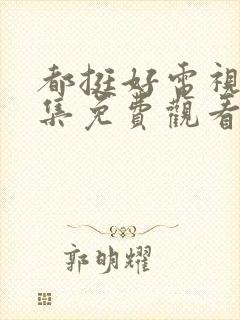 都挺好電視
集免費觀看
郭明耀